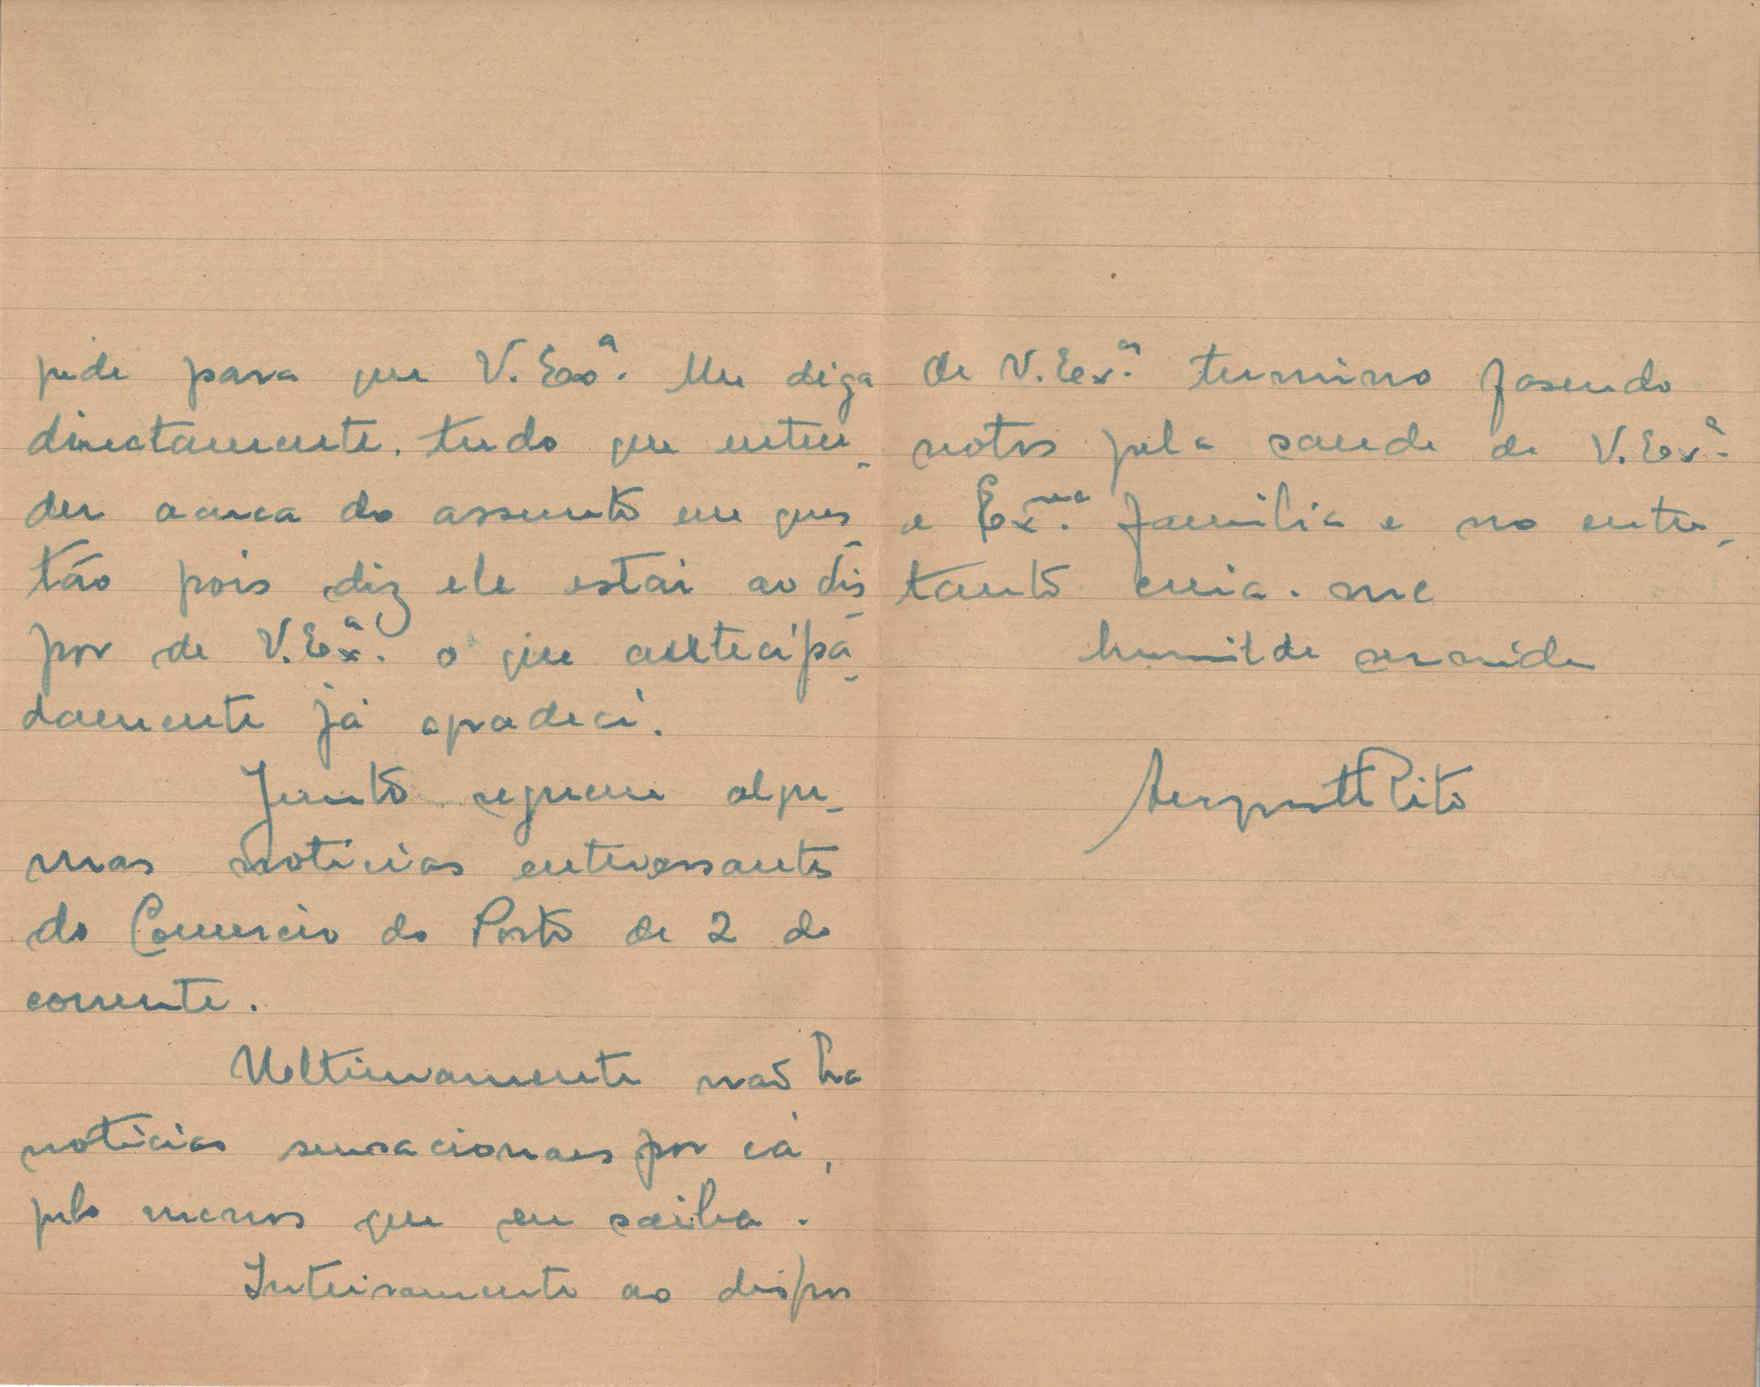 pede para que V. Exª. lhe diga
directamente. tudo que enten-
der acerca do assunto em ques-
tão pois diz ele estar ao dis-
por de V. Exª. o que antecipa-
damente já agradeci.
Junto seguem algu-
mas noticias enteressantes
do Comercio do Porto de 2 do
corrente.
Ultimamente não ha
noticias sensacionaes por cá,
pelo menos que eu saiba.
Inteiramente ao dispor
de V. Exª. termino fasendo
votos pela saude de V. Exª.
e Exma. familia e no entre-
tanto creia-me
humilde servidor
Pito